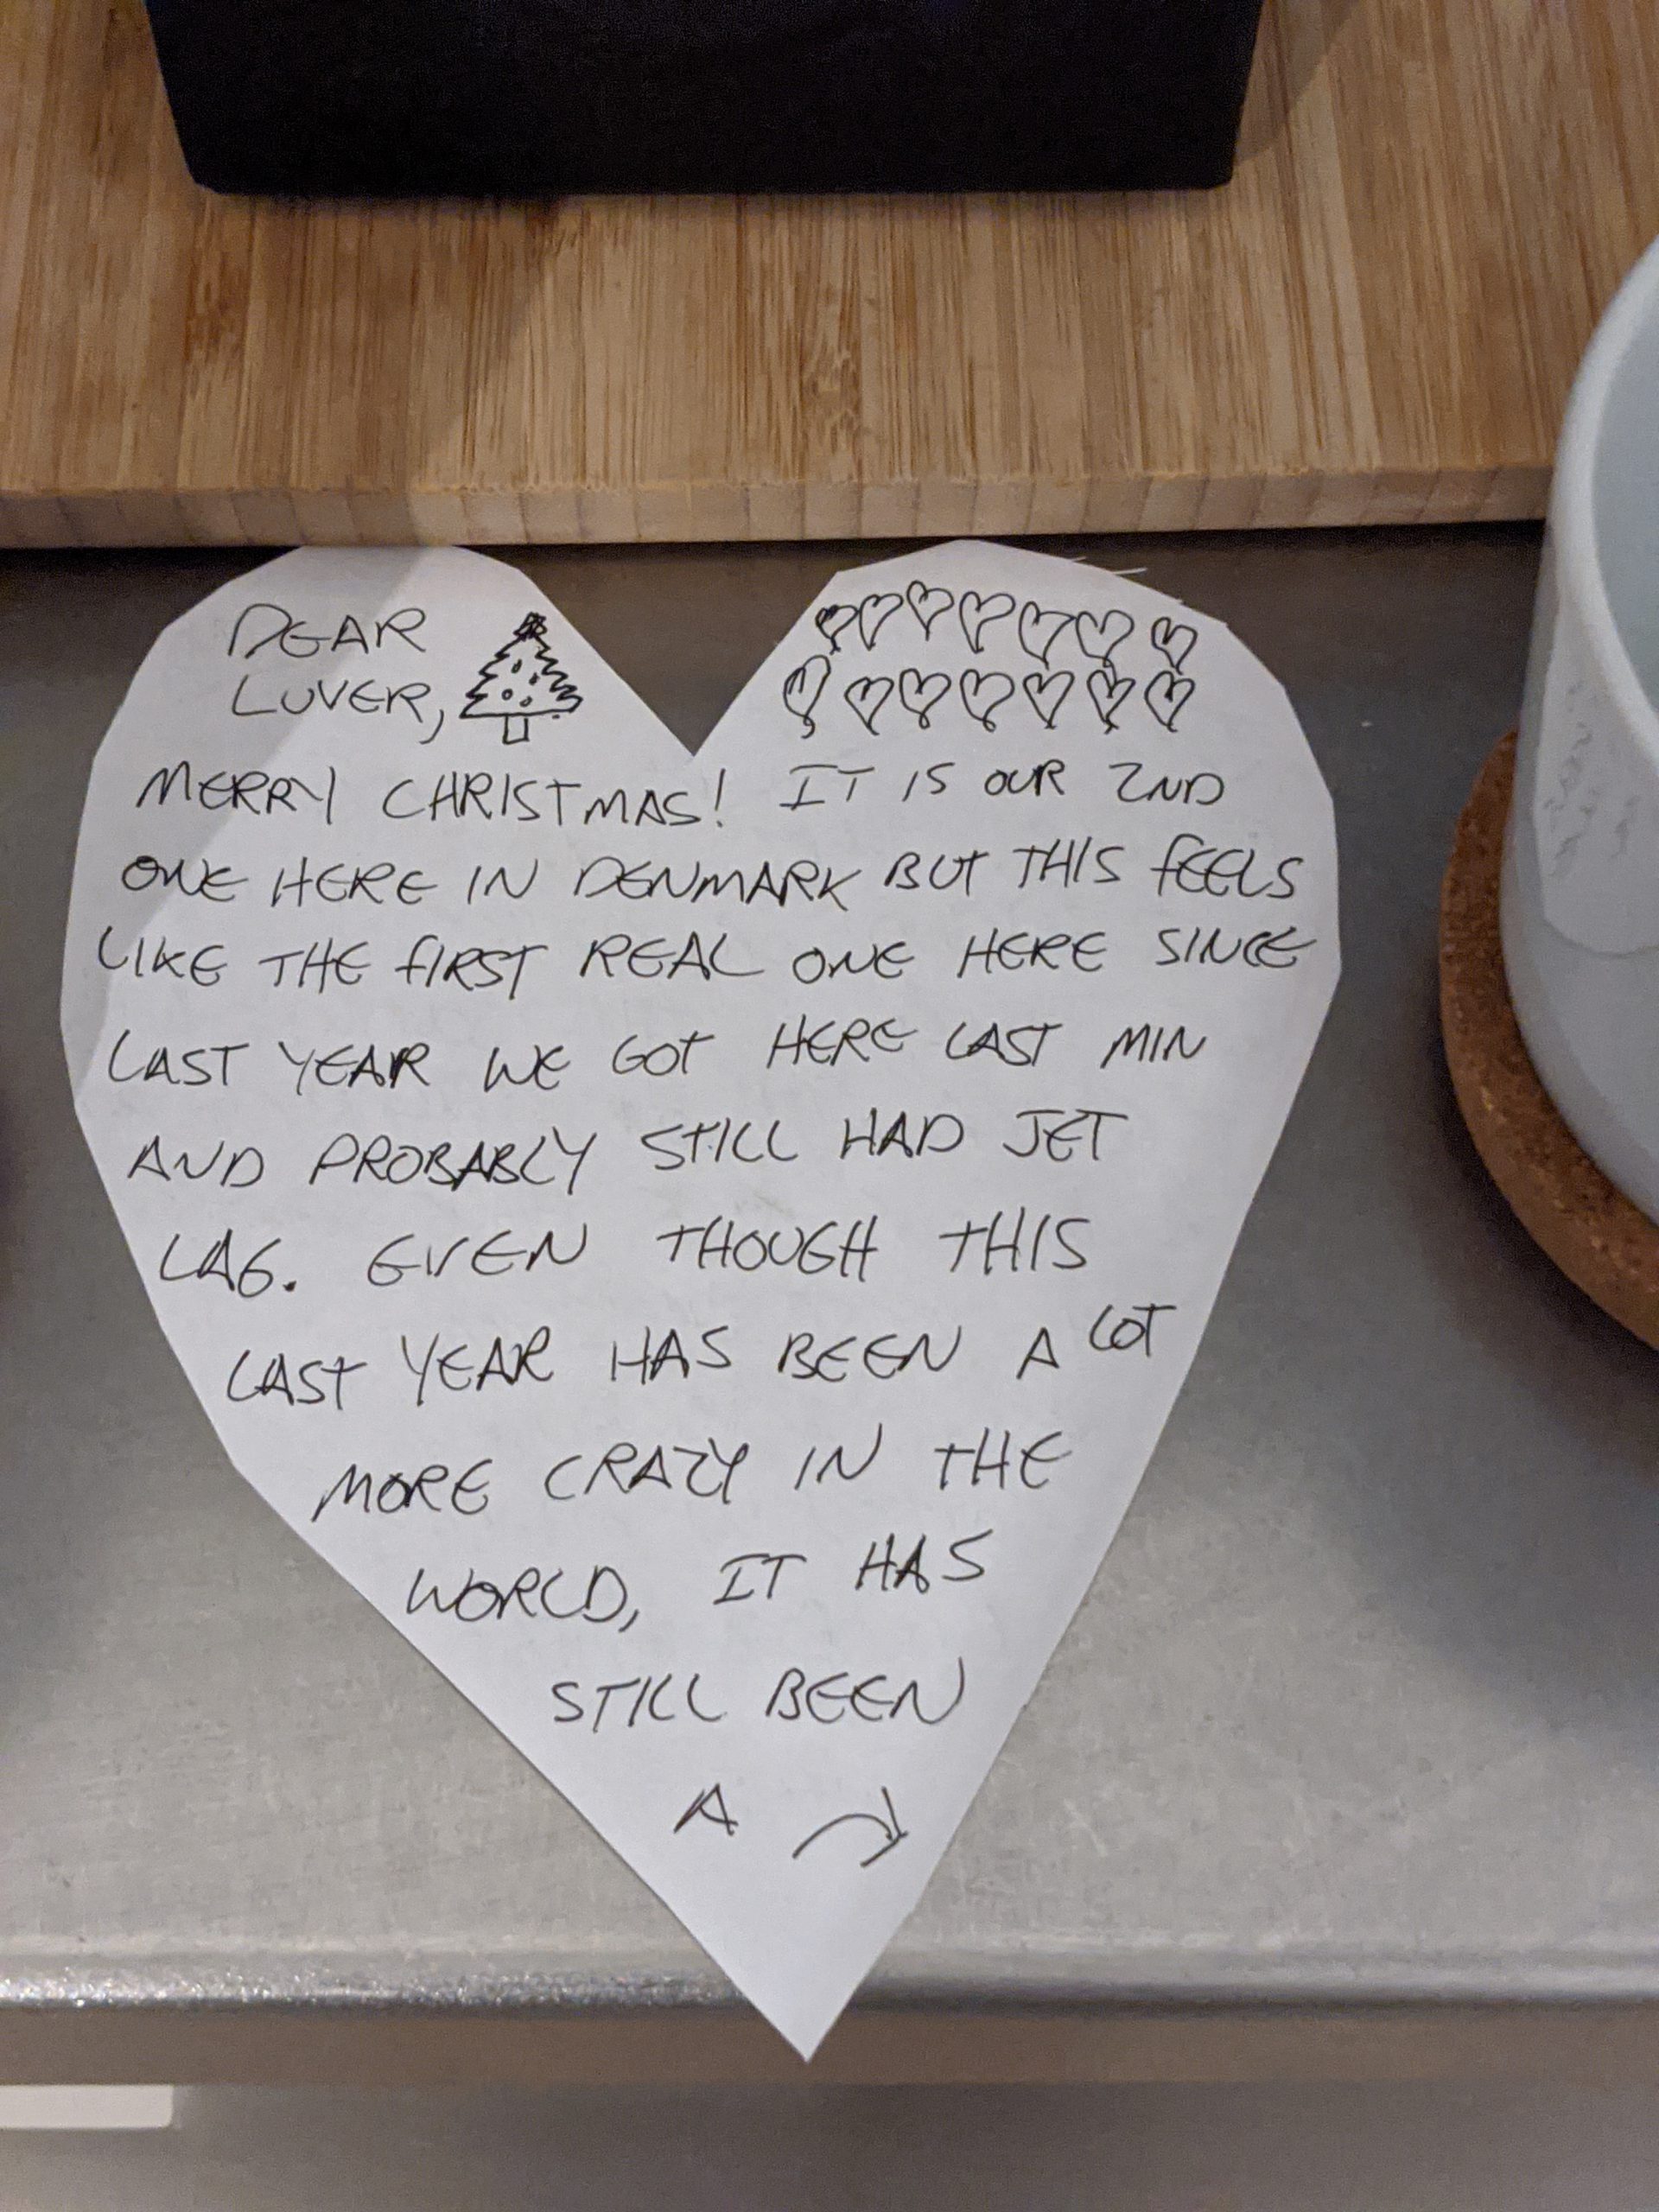 DEAR
LUVER,
MERRY CHRISTMAS! IT IS OUR 2ND
ONE HERE IN DENMARK BUT THIS FEELS
LIKE THE FIRST REAL ONE HERE SINCE
LAST YEAR WE GOT HERE LAST MIN
AND PROBABLY STILL HAD JET
LAG. EVEN THOUGH THIS
LAST YEAR HAS BEEN A LOT
MORE CRAZY IN THE
WORLD, IT HAS
STILL BEEN
A